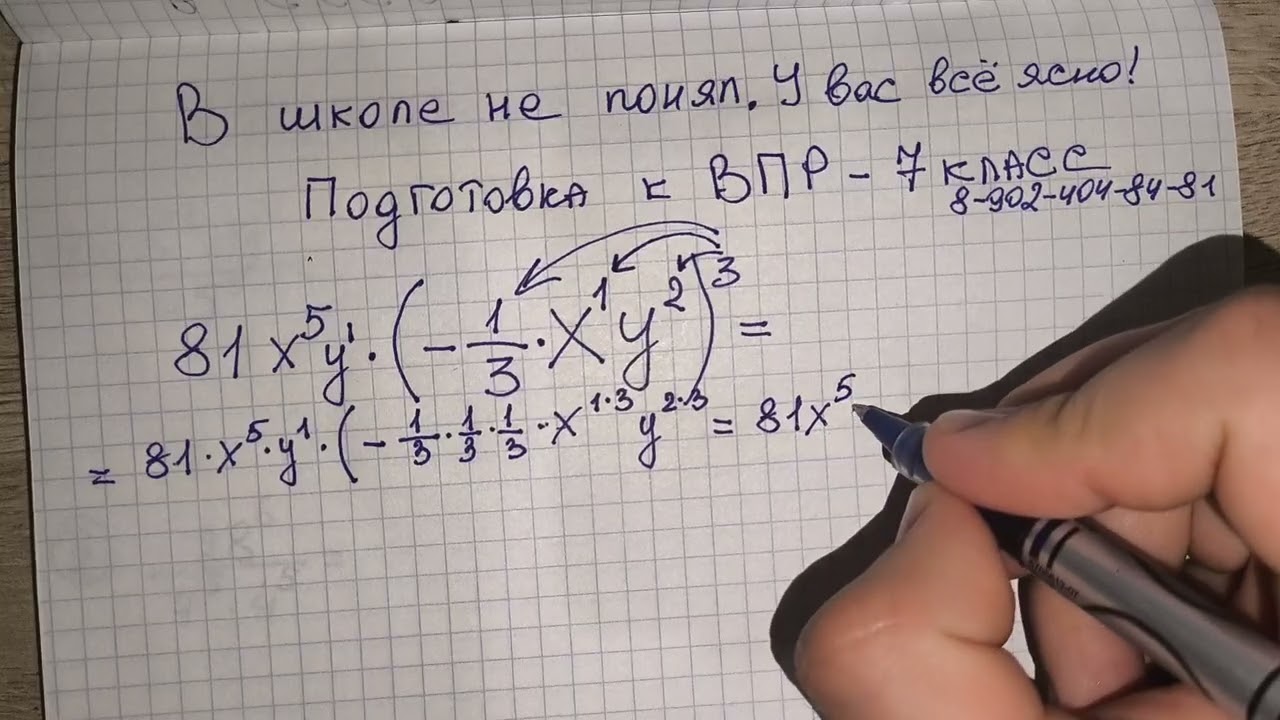 В школе не понял. У вас всё ясно!
Подготовка к ВПР - 7 КЛАСС
8-902-404-84-81
81 x⁵y¹ · (- 1/3 · x¹y²)³ =
= 81 · x⁵ · y¹ · (- 1/3 · 1/3 · 1/3 · x¹·³ y²·³ = 81x⁵